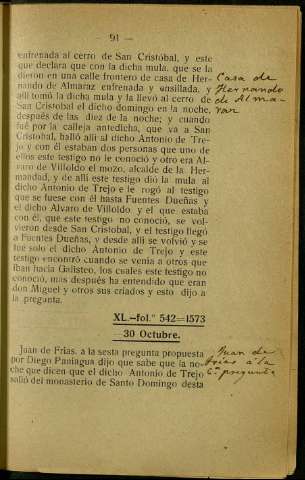 — 91 —
enfrenada al cerro de San Cristóbal, y este
que declara que con la dicha mula, que se la
dieron en una calle frontero de casa de Her-
nando de Almaraz enfrenada y ensillada, y
alli tomó la dicha mula y la llevó al cerro de
San Cristobal el domingo en la noche,
después de las diez de la noche; y cuando
fué por la calleja antedicha, que va a San
Cristobal, balló alli al dicho Antonio de Tre-
jo y con él estaban dos personas que uno de
ellos este testigo no le conoció y otro era Al-
varo de Villoldo el mozo, alcalde de la Her-
mandad, y de alli este testigo dió la mula al
dicho Antonio de Trejo e le rogó al testigo
que se fuese con él hasta Fuentes Dueñas y
el dicho Alvaro de Villoldo y el que estaba
con él, que este testigo no conoció, se vol-
vieron desde San Cristobal, y el testigo llegó
a Fuentes Dueñas, y desde alli se volvió y se
fue solo el dicho Antonio de Trejo y este
testigo encontró cuando se venia a otros que
iban hacia Galisteo, los cuales este testigo no
conoció, mas después ha entendido que eran
don Miguel y otros sus criados y esto dijo a
la pregunta.
Casa de
Hernando
de Alma-
raz
XL.—fol.º 542=1573
30 Octubre.
Juan de Frias, a la sesta pregunta propuesta
por Diego Paniagua dijo que sabe que la no-
che que dicen que el dicho Antonio de Trejo
salió del monasterio de Santo Domingo desta
Juan de
Frias á la
6ª pregunta